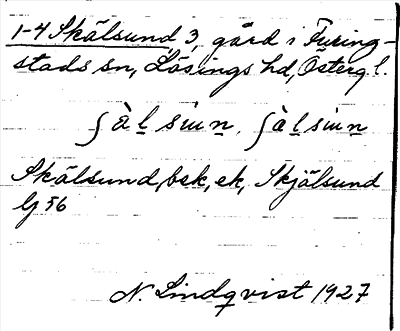 1-4 Skälsund, 3, gård i Furing-
stads sn, Lösings hd, Östergl.
ʃàl sɯn, ʃàlsɯn
Skälsund, bsk, ek, Skjälsund
Lj 56
N. Lindqvist 1927